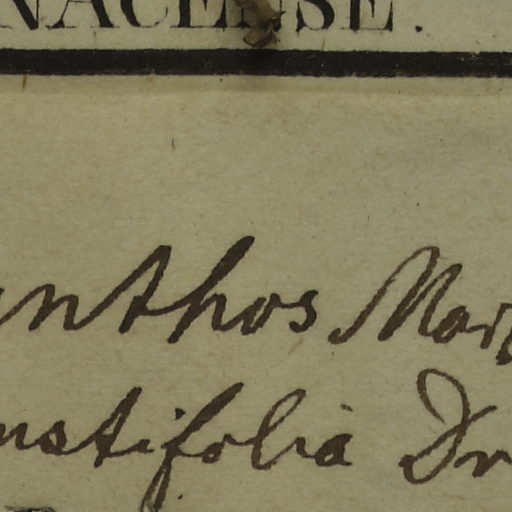 NACENSE.
anthos Mart
ustifolia Dr